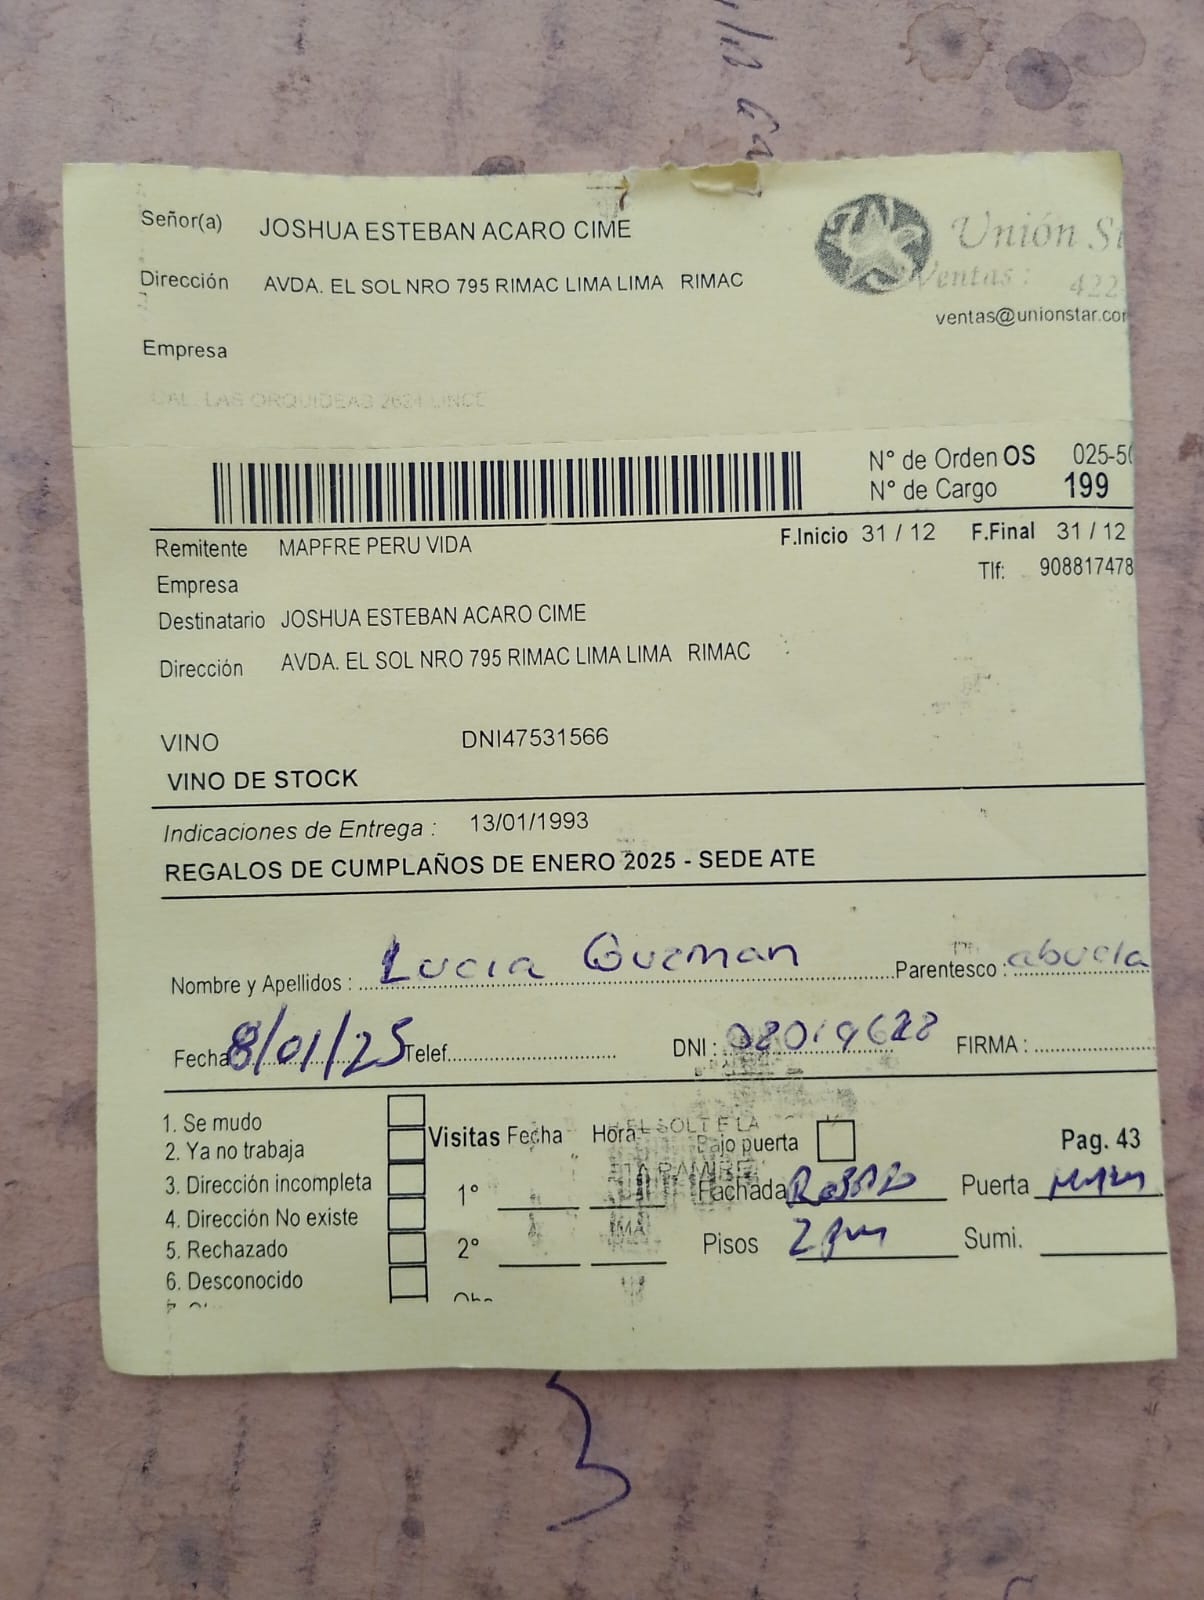 Señor(a) JOSHUA ESTEBAN ACARO CIME
Unión
Ventas : 422
Dirección AVDA. EL SOL NRO 795 RIMAC LIMA LIMA RIMAC
ventas@unionstar.com
Empresa
CAL. LAS ORQUIDEAS 2624 LINCE
N° de Orden OS 025-50
N° de Cargo 199
Remitente MAPFRE PERU VIDA
F.Inicio 31 / 12 F.Final 31 / 12
Empresa
Tlf: 908817478
Destinatario JOSHUA ESTEBAN ACARO CIME
Dirección AVDA. EL SOL NRO 795 RIMAC LIMA LIMA RIMAC
VINO DNI47531566
VINO DE STOCK
Indicaciones de Entrega : 13/01/1993
REGALOS DE CUMPLAÑOS DE ENERO 2025 - SEDE ATE
Nombre y Apellidos : Lucia Guzman Parentesco : abuela
Fecha 8/01/25 Telef. DNI : 08019628 FIRMA :
1. Se mudo
2. Ya no trabaja
3. Dirección incompleta
4. Dirección No existe
5. Rechazado
6. Desconocido
Visitas Fecha Hora
1°
2°
Bajo puerta
Pag. 43
Fachada Puerta
Pisos 2 Sumi.